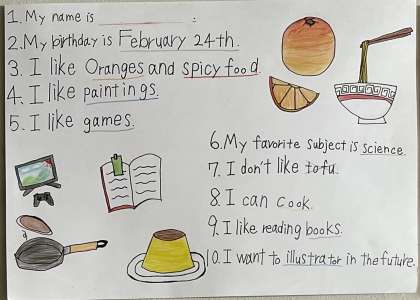 1. My name is ____________ :
2. My birthday is February 24th.
3. I like Oranges and spicy food.
4. I like paintings.
5. I like games.
6. My favorite subject is science.
7. I don't like tofu.
8. I can cook.
9. I like reading books.
10. I want to illustrator in the future.